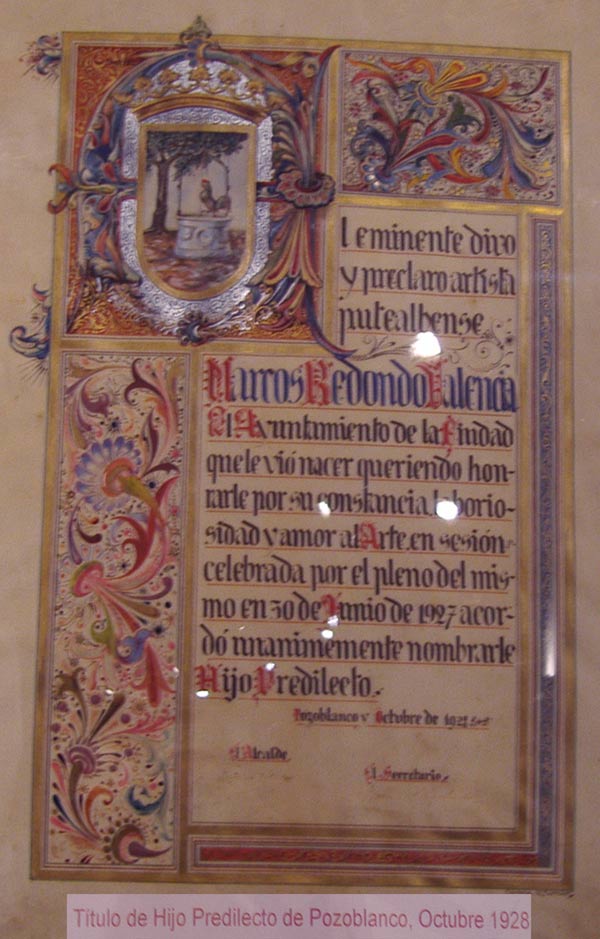 Al eminente divo
y preclaro artista
putealbense
Marcos Redondo Valencia
El Ayuntamiento de la Ciudad
que le vió nacer queriendo hon-
rarle por su constancia, laborio-
sidad y amor al Arte, en sesión
celebrada por el pleno del mis-
mo en 30 de Junio de 1927 acor-
dó unanimemente nombrarle
Hijo Predilecto.
Pozoblanco y Octubre de 1928
El Alcalde
El Secretario
Título de Hijo Predilecto de Pozoblanco, Octubre 1928